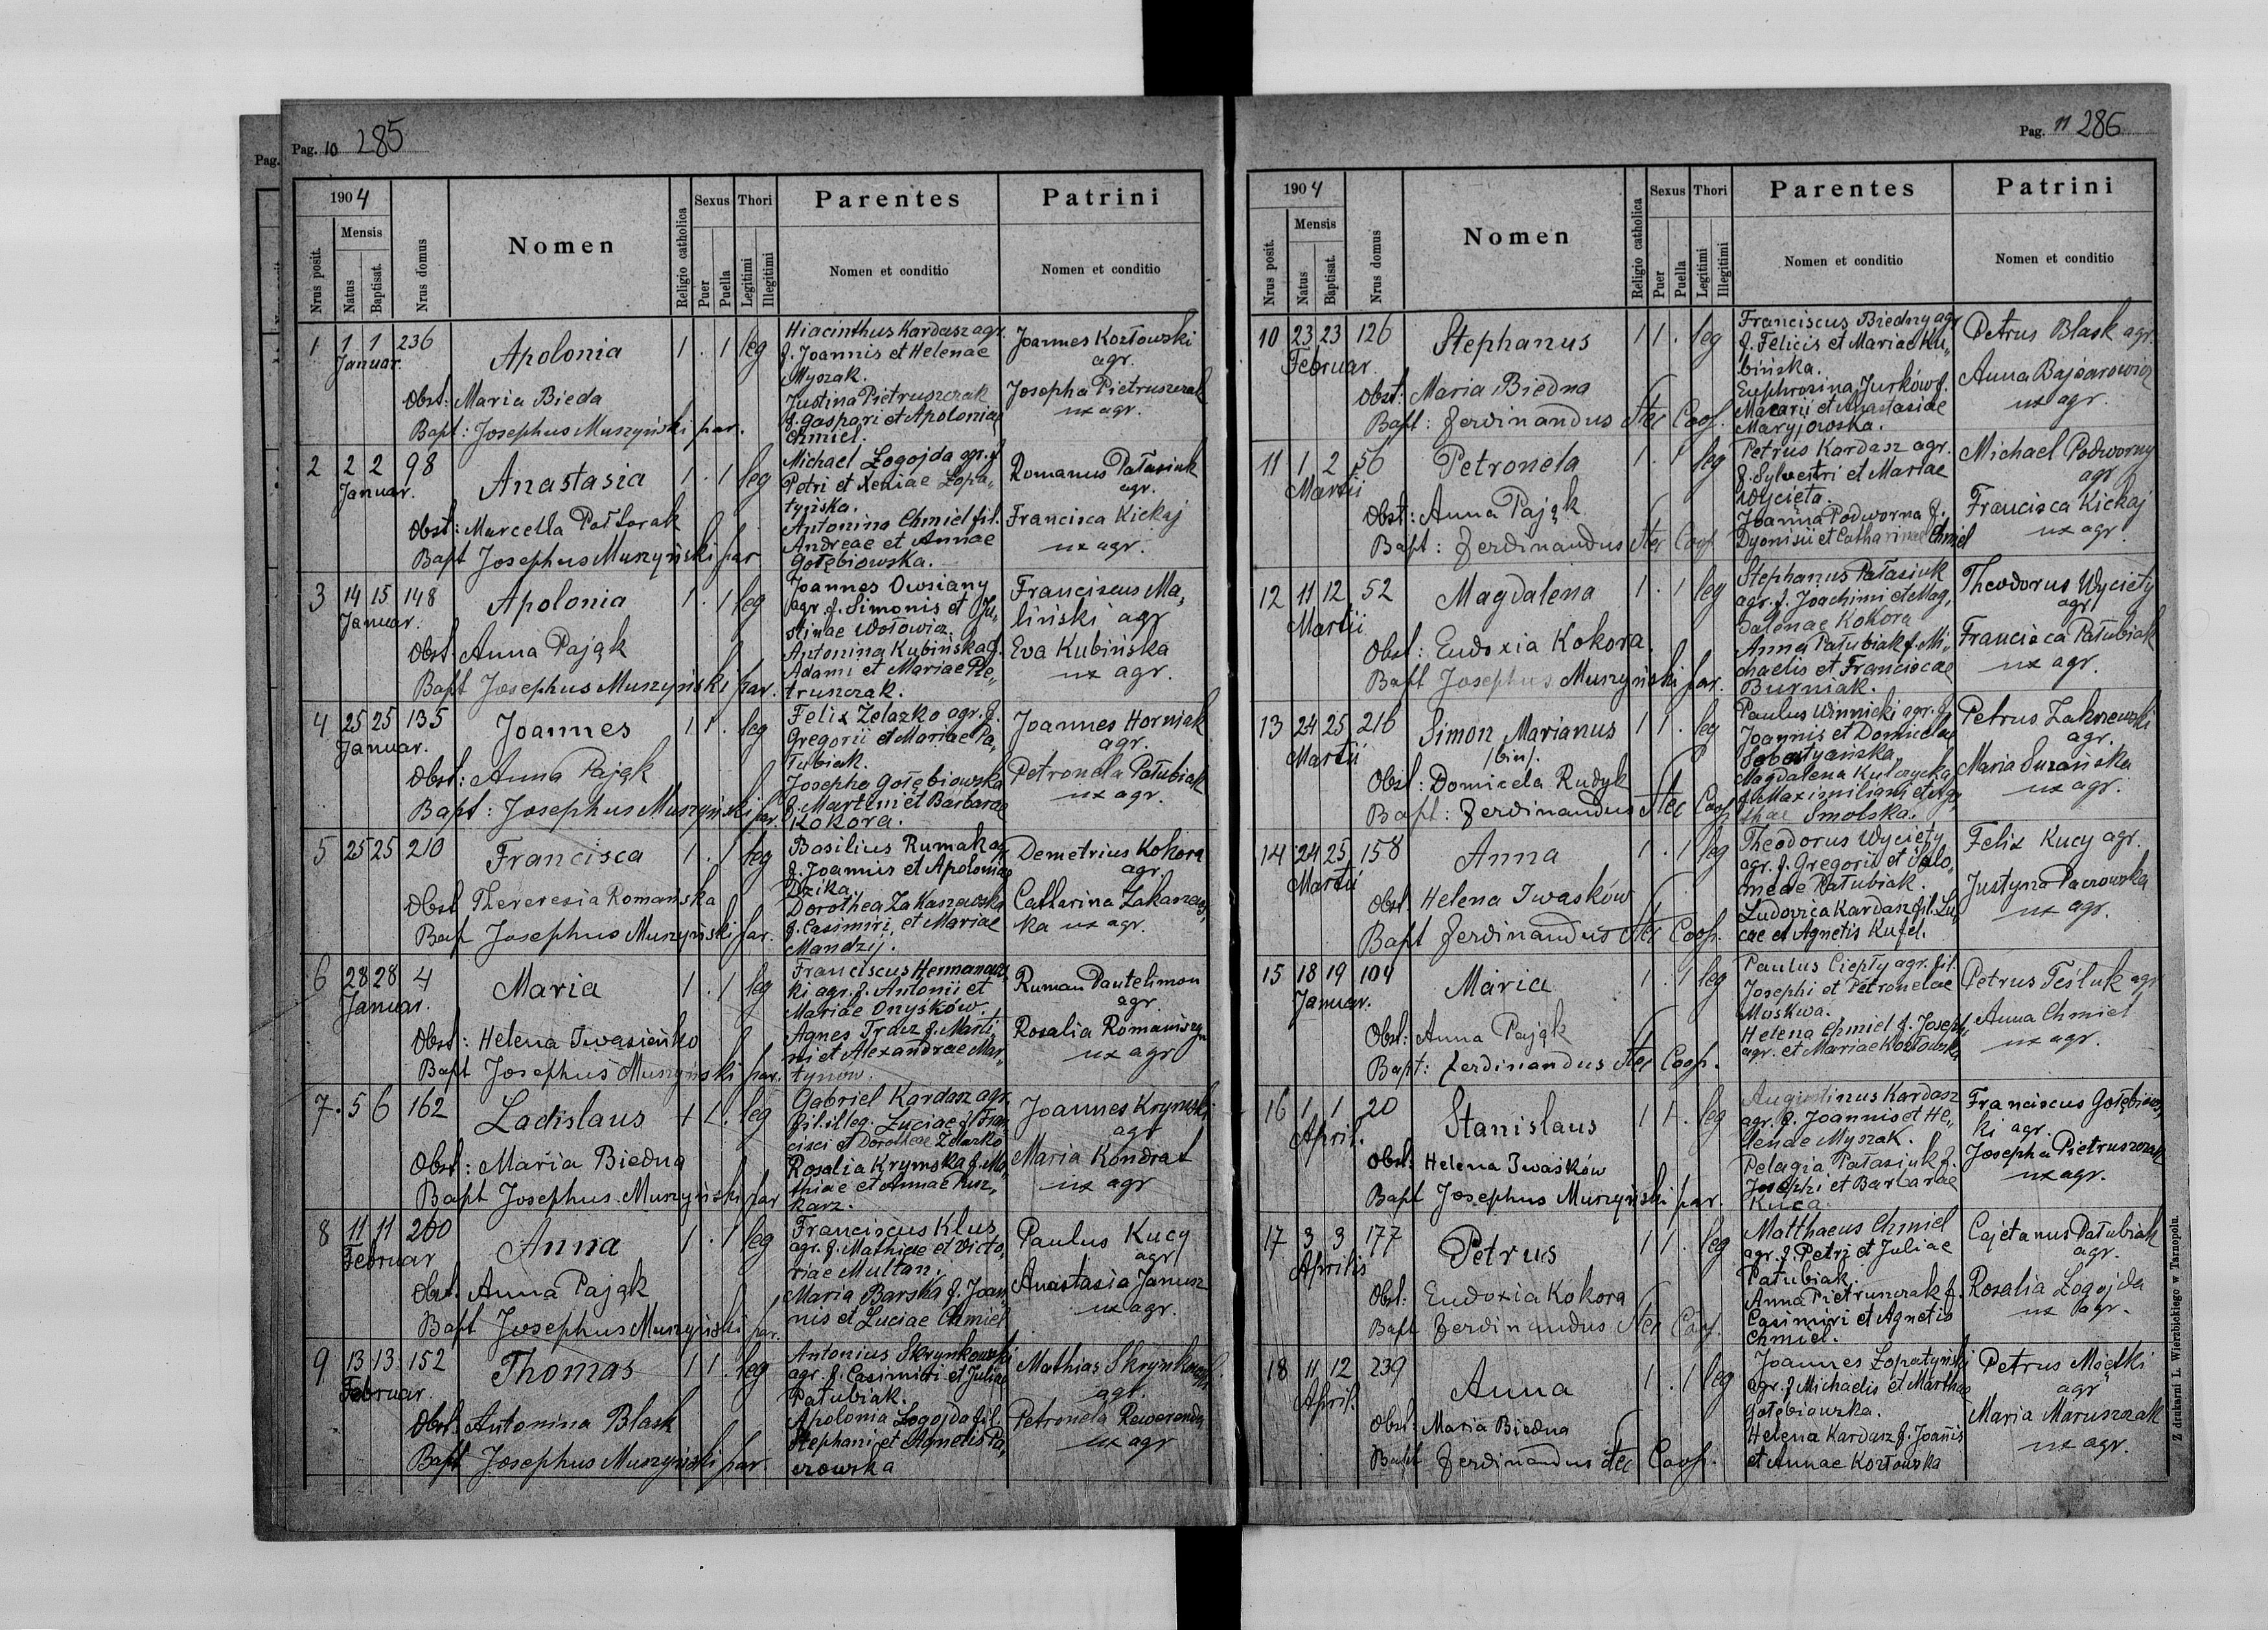 Pag.
Pag. 10 285
1904
Mensis
Nrus posit.
Natus
Baptisat.
Nrus domus
Nomen
Religio catholica
Sexus
Puer
Puella
Thori
Legitimi
Illegitimi
Parentes
Nomen et conditio
Patrini
Nomen et conditio
1 1 1 236 Apolonia 1 . 1 leg
Januar.
Obst: Maria Bieda
Bapt: Josephus Muszyński par.
Hiacinthus Kardasz agr.
f. Joannis et Helenae
Myszak.
Justina Pietruszczak
f. Gaspari et Apoloniae
Chmiel.
Joannes Kozłowski
agr.
Josepha Pietruszczak
ux agr.
2 2 2 98 Anastasia 1 . 1 leg
Januar.
Obst: Marcella Półtorak
Bapt Josephus Muszyński par
Michael Łogojda agr. f.
Petri et Xeniae Łopa„
tyńska.
Antonina Chmiel fil.
Andreae et Annae
Gołębiowska.
Romanus Pałasiuk
agr.
Francisca Kickaj
ux agr.
3 14 15 148 Apolonia 1 . 1 leg
Januar.
Obst. Anna Pająk
Bapt Josephus Muszyński par.
Joannes Owsiany
agr. f. Simonis et Ju„
stinae Wołowicz.
Antonina Kubińska f.
Adami et Mariae Pie„
truszczak.
Franciscus Ma„
liński agr
Eva Kubińska
ux agr.
4 25 25 135 Joannes 1 1 . leg
Januar.
Obst: Anna Pająk
Bapt: Josephus Muszyński par.
Felix Żelazko agr. f.
Gregorii et Mariae Pa„
łubiak.
Josepha Gołębiowska
f. Martini et Barbarae
Kokora.
Joannes Horniak
agr.
Petronela Pałubiak
ux agr.
5 25 25 210 Francisca 1 . 1 leg
Obst Theresia Romańska
Bapt Josephus Muszyński par.
Basilius Rumak agr
f. Joannis et Apoloniae
Dzika.
Dorothea Zakaszewska
f. Casimiri, et Mariae
Mandzij.
Demetrius Kokora
agr.
Catharina Zakaszews„
ka ux agr.
6 28 28 4 Maria 1 . 1 leg
Januar.
Obst: Helena Iwasieńko
Bapt Josephus Muszyński par.
Franciscus Hermanows
ki agr. f. Antonii et
Mariae Onysków.
Agnes Tracz f. Marti„
ni et Alexandrae Mar„
tynow.
Ruman Pantelimon
agr.
Rosalia Romaniszyn
ux agr
7. 5 6 162 Ladislaus 1 1. leg
Obst: Maria Biedna
Bapt Josephus Muszyński par
Gabriel Kardasz agr.
fil. illeg. Luciae f. Fran„
cisci et Dorotheae Żelazko
Rosalia Krymska f. Ma„
thiae et Annae Pusz„
karz.
Joannes Krymski
agr
Maria Kondrat
ux agr
8 11 11 200 Anna 1 . 1 leg
Februar
Obst. Anna Pająk
Bapt Josephus Muszyński par.
Franciscus Klus
agr. f. Mathiae et Victo„
riae Multan.
Maria Barska f. Joan„
nis et Luciae Chmiel
Paulus Kucy
agr
Anastasia Janusz
ux agr.
9 13 13 152 Thomas 1 1. leg
Februar.
Obst. Antonina Blask
Bapt Josephus Muszyński par.
Antonius Skrynkowski
agr. f. Casimiri et Juliae
Pałubiak.
Apolonia Łogojda fil.
Stephani et Agnetis Pa„
czowska
Mathias Skrynkowski
agr.
Petronela Rewerenda
ux agr
Pag. 11 286
1904
Mensis
Nrus posit.
Natus
Baptisat.
Nrus domus
Nomen
Religio catholica
Sexus
Puer
Puella
Thori
Legitimi
Illegitimi
Parentes
Nomen et conditio
Patrini
Nomen et conditio
10 23 23 126 Stephanus 1 1 . leg
Februar.
Obst: Maria Biedna
Bapt: Ferdinandus Coop.
Franciscus Biedny agr
f. Felicis et Mariae Ku„
bińska.
Euphrosina Jurków f.
Macarii et Anastasiae
Maryjowska.
Petrus Blask agr.
Anna Bajcarowicz
ux agr.
11 1 2 56 Petronela 1 . 1 leg
Martii
Obst: Anna Pająk
Bapt: Ferdinandus Coop
Petrus Kardasz agr.
f. Sylvestri et Mariae
Wycięta.
Joanna Podworna f.
Dyonisii et Catharinae Chmiel
Michael Podworny
agr
Francisca Kickaj
ux agr.
12 11 12 52 Magdalena 1 . 1 leg
Martii
Obst: Eudoxia Kokora
Bapt Josephus Muszyński par.
Stephanus Pałasiuk
agr. f. Joachimi et Mag„
dalenae Kokora
Anna Pałubiak f. Mi„
chaelis et Franciscae
Burniak.
Theodorus Wycięty
agr
Francisca Pałubiak
ux agr.
13 24 25 216 Simon Marianus 1 1 . leg
Martii /bin/.
Obst: Domicela Rudyk
Bapt: Ferdinandus Coop
Paulus Winnicki agr. f.
Joannis et Domicelae
Sebastyańska
Magdalena Kulczycka
f. Maximiliani et Aga
thae Smolska.
Petrus Zakrzewski
agr.
Maria Surańska
ux agr.
14 24 25 158 Anna 1 . 1 leg
Martii
Obst. Helena Iwasków
Bapt Ferdinandus Coop.
Theodorus Wycięty
agr. f. Gregorii et Salo„
meae Pałubiak.
Ludovica Kardasz fil. Lu„
cae et Agnetis Kufel.
Felix Kucy agr.
Justyna Paczowska
ux agr.
15 18 19 104 Maria 1 . 1 leg
Januar.
Obst: Anna Pająk
Bapt: Ferdinandus Coop.
Paulus Ciepły agr. fil.
Josephi et Petronelae
Moskwa.
Helena Chmiel f. Josephi
agr. et Mariae Kozłowska
Petrus Teśluk agr
Anna Chmiel
ux agr.
16 1 1 20 Stanislaus 1 1 . leg
April.
Obst: Helena Iwasków
Bapt Josephus Muszyński par.
Augustinus Kardasz
agr. f. Joannis et He„
lenae Myszak.
Pelagia Pałasiuk f.
Josephi et Barbarae
Kuca.
Franciscus Gołębiows„
ki agr.
Josepha Pietruszczak
ux agr.
17 3 3 177 Petrus 1 1 . leg
Aprilis
Obst: Eudoxia Kokora
Bapt Ferdinandus Coop.
Matthaeus Chmiel
agr. f. Petri et Juliae
Pałubiak.
Anna Pietruszczak f.
Casimiri et Agnetis
Chmiel.
Cajetanus Pałubiak
agr.
Rosalia Łogojda
ux agr.
18 11 12 239 Anna 1 . 1 leg
April.
Obst: Maria Biedna
Bapt Ferdinandus Coop.
Joannes Łopatyński
agr. f. Michaelis et Marthae
Gołębiowska.
Helena Kardasz f. Joanis
et Annae Kozłowska
Petrus
agr
Maria Maruszczak
ux agr.
Z drukarni L. Wierzbickiego w Tarnopolu.